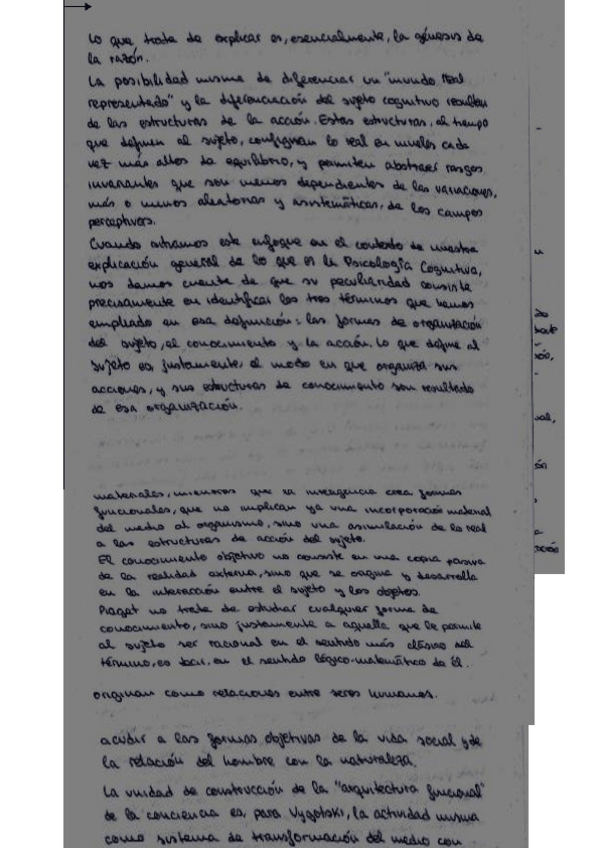 Lo que trata de explicar es, esencialmente, la génesis de
la razón.
La posibilidad misma de diferenciar un "mundo real
representado" y la diferenciación del sujeto cognitivo resultan
de las estructuras de la acción. Estas estructuras, al tiempo
que definen al sujeto, configuran lo real en niveles cada
vez más altos de equilibrio, y permiten abstraer rasgos
invariantes que son menos dependientes de las variaciones,
más o menos aleatorias y asistemáticas, de los campos
perceptivos.
Cuando situamos este enfoque en el contexto de nuestra
explicación general de lo que es la Psicología Cognitiva,
nos damos cuenta de que su peculiaridad consiste
precisamente en identificar los tres términos que hemos
empleado en esa definición: las formas de organización
del sujeto, el conocimiento y la acción. Lo que define al
sujeto es, justamente, el modo en que organiza sus
acciones, y sus estructuras de conocimiento son resultado
de esa organización.
materiales, mientras que la inteligencia crea formas
funcionales, que no implican ya una incorporación material
del medio al organismo, sino una asimilación de lo real
a las estructuras de acción del sujeto.
El conocimiento objetivo no consiste en una copia pasiva
de la realidad externa, sino que se origina y desarrolla
en la interacción entre el sujeto y los objetos.
Piaget no trata de estudiar cualquier forma de
conocimiento, sino justamente a aquella que le permite
al sujeto ser racional en el sentido más clásico del
término, es decir, en el sentido lógico-matemático de él.
originan como relaciones entre seres humanos.
acudir a las formas objetivas de la vida social y de
la relación del hombre con la naturaleza.
La unidad de construcción de la "arquitectura funcional"
de la conciencia es, para Vygotski, la actividad misma
como sistema de transformación del medio con